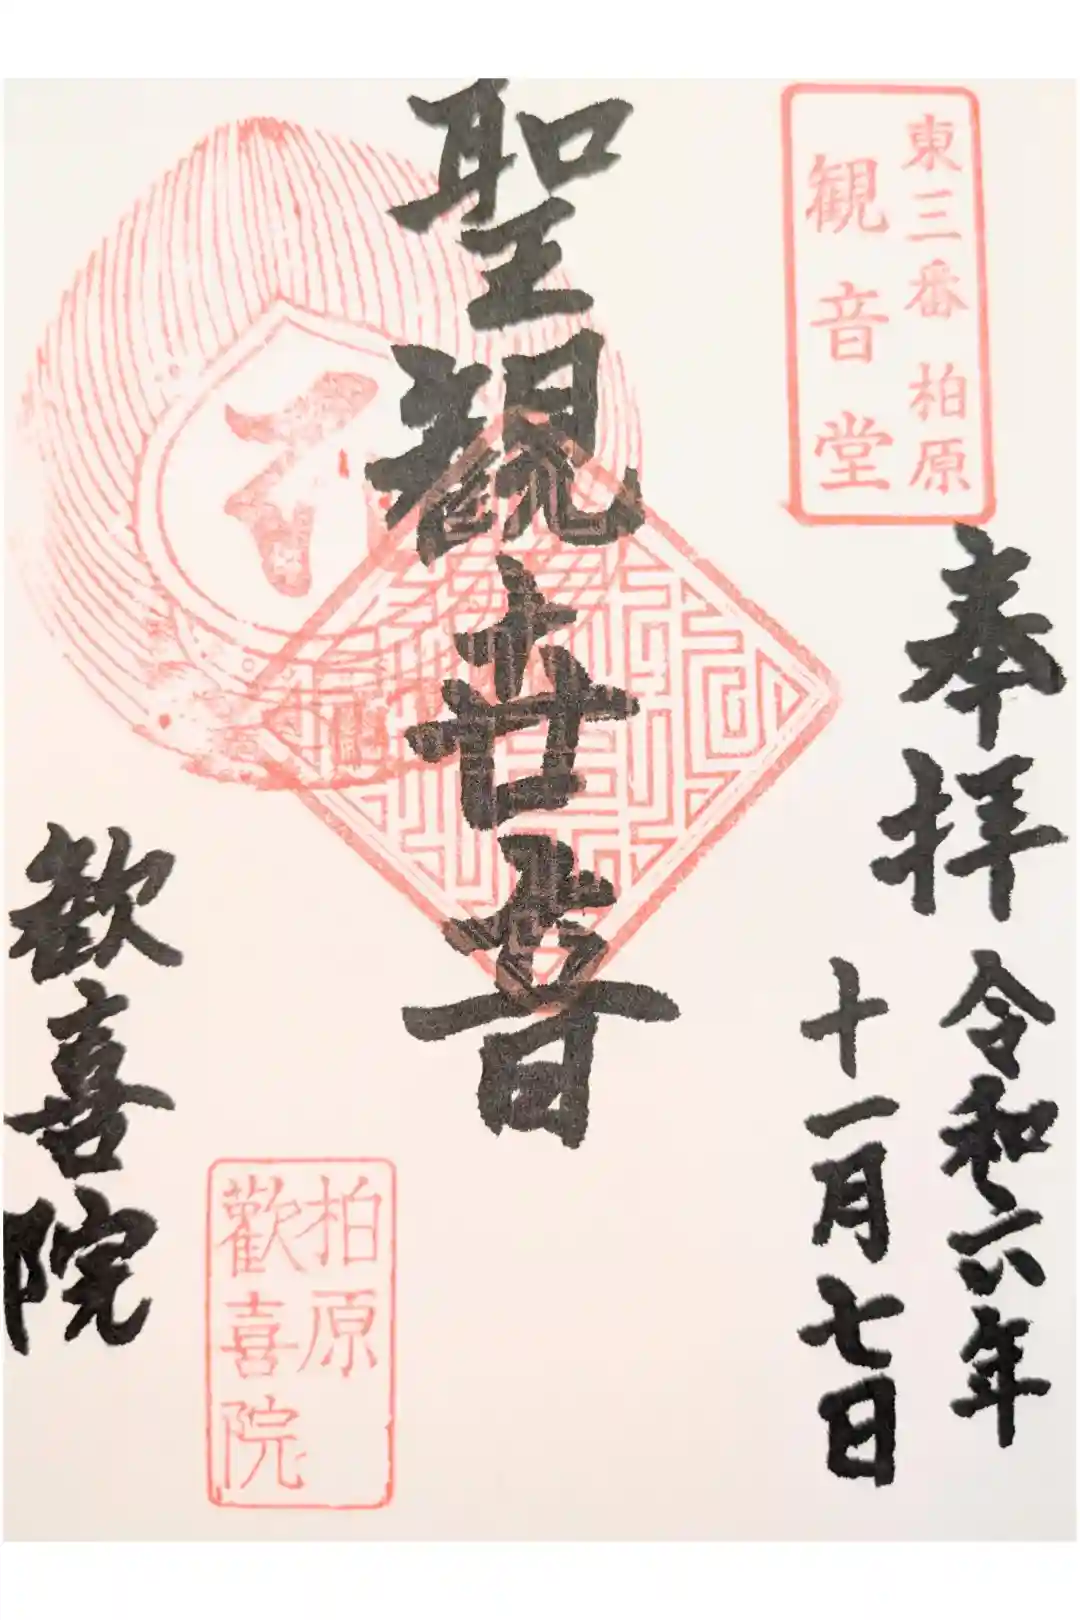 東三番 柏原
観音堂
奉拝
令和六年
十一月七日
聖観世音
柏原
歡喜院
歓喜院